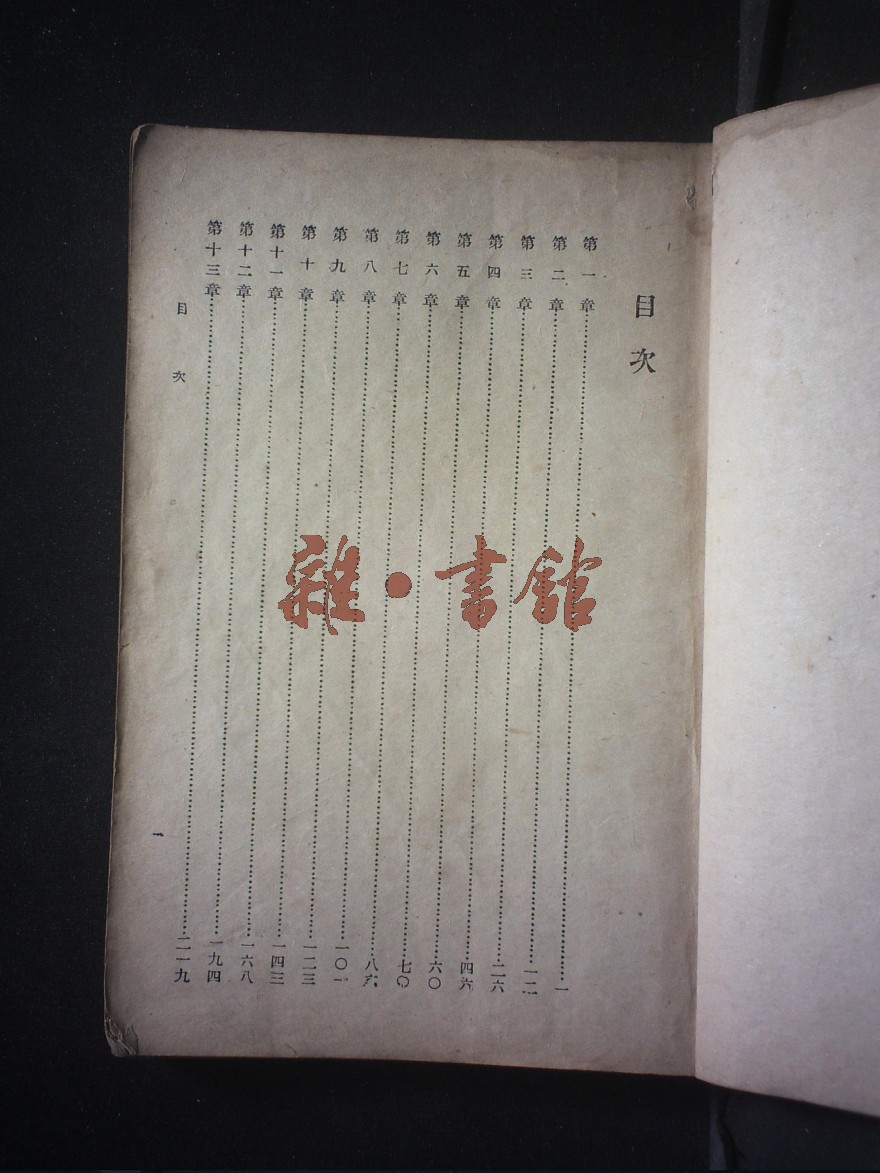 目次
第一章……一
第二章……一二
第三章……二六
第四章……四六
第五章……六〇
第六章……七〇
第七章……八六
第八章……一〇一
第九章……一二三
第十章……一四三
第十一章……一六八
第十二章……一九四
第十三章……二一九
目次
一
雜·書館